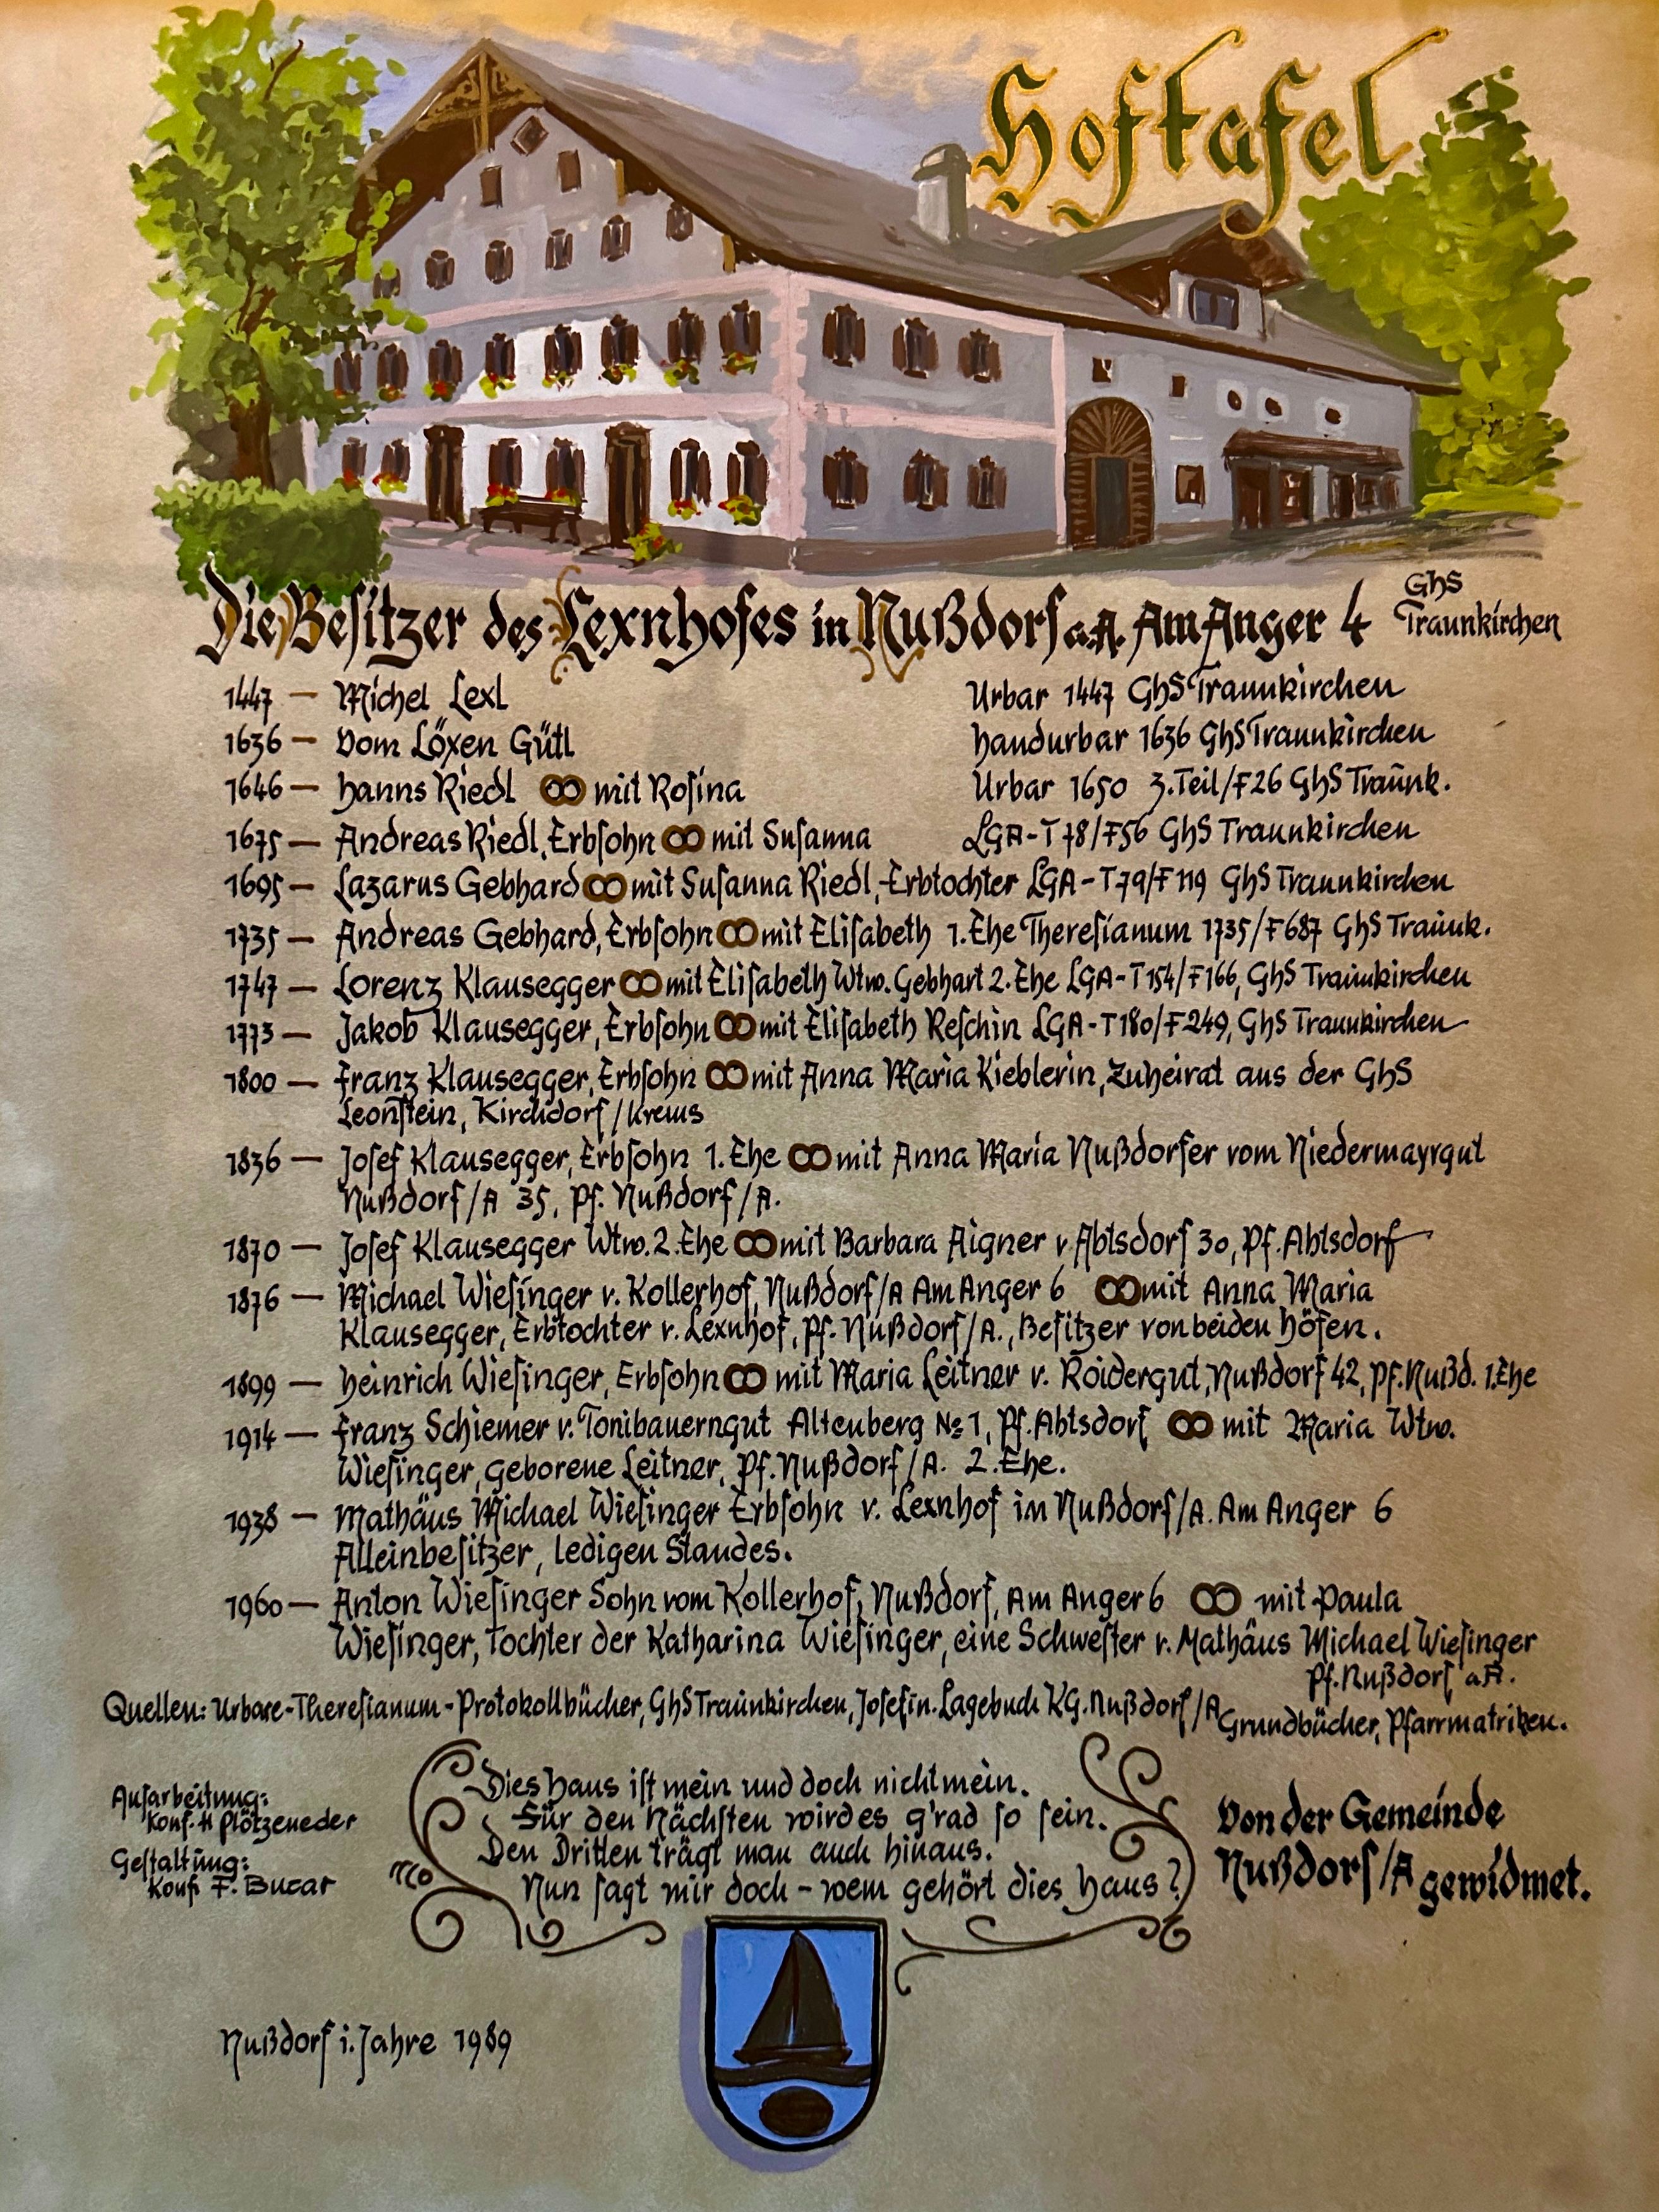 Hoftafel
Die Besitzer des Lexnhofes in Nußdorf a.A. Am Anger 4 GhS Traunkirchen
1447 — Michel Lexl Urbar 1447 GhS Traunkirchen
1636 — Vom Löxen Gütl Handurbar 1636 GhS Traunkirchen
1646 — Hanns Riedl ⚭ mit Rosina Urbar 1650 3.Teil/F26 GhS Traunk.
1675 — Andreas Riedl, Erbsohn ⚭ mit Susanna LGA-T78/F56 GhS Traunkirchen
1695 — Lazarus Gebhard ⚭ mit Susanna Riedl, Erbtochter LGA-T79/F119 GhS Traunkirchen
1735 — Andreas Gebhard, Erbsohn ⚭ mit Elisabeth 1. Ehe Theresianum 1735/F687 GhS Traunk.
1747 — Lorenz Klausegger ⚭ mit Elisabeth Wtw. Gebhart 2. Ehe LGA-T154/F166, GhS Traunkirchen
1773 — Jakob Klausegger, Erbsohn ⚭ mit Elisabeth Reschin LGA-T180/F249, GhS Traunkirchen
1800 — Franz Klausegger, Erbsohn ⚭ mit Anna Maria Kieblerin, Zuheirat aus der GhS
Leonstein, Kirchdorf/Krems
1836 — Josef Klausegger, Erbsohn 1. Ehe ⚭ mit Anna Maria Nußdorfer vom Niedermayrgut
Nußdorf/A 35, Pf. Nußdorf/A.
1870 — Josef Klausegger Wtw. 2. Ehe ⚭ mit Barbara Aigner v. Abtsdorf 30, Pf. Abtsdorf
1876 — Michael Wiesinger v. Kollerhof, Nußdorf/A Am Anger 6 ⚭ mit Anna Maria
Klausegger, Erbtochter v. Lexnhof, Pf. Nußdorf/A., Besitzer von beiden Höfen.
1899 — Heinrich Wiesinger, Erbsohn ⚭ mit Maria Leitner v. Roidergut, Nußdorf 42, Pf. Nußd. 1. Ehe
1914 — Franz Schiemer v. Tonibauerngut Altenberg № 1, Pf. Abtsdorf, ⚭ mit Maria Wtw.
Wiesinger, geborene Leitner, Pf. Nußdorf/A. 2. Ehe.
1938 — Mathäus Michael Wiesinger Erbsohn v. Lexnhof in Nußdorf/A. Am Anger 6
Alleinbesitzer, ledigen Standes.
1960 — Anton Wiesinger Sohn vom Kollerhof, Nußdorf, Am Anger 6 ⚭ mit Paula
Wiesinger, Tochter der Katharina Wiesinger, eine Schwester v. Mathäus Michael Wiesinger
Pf. Nußdorf a.A.
Quellen: Urbare-Theresianum-Protokollbücher, GhS Traunkirchen, Josefin. Lagebuch KG. Nußdorf/A
Grundbücher, Pfarrmatriken.
Ausarbeitung:
Kons. H Plötzeneder
Gestaltung:
Kons F. Bucar
Dies Haus ist mein und doch nicht mein.
Für den Nächsten wird es g'rad so sein.
Den Dritten trägt man auch hinaus.
Nun sagt mir doch - wem gehört dies Haus?
Von der Gemeinde
Nußdorf/A gewidmet.
Nußdorf i. Jahre 1989